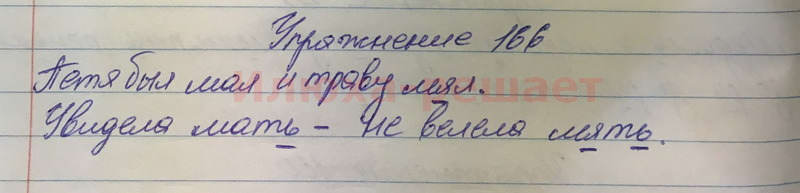 Упражнение 166
Петя был мал и траву мял.
Илюха решает
Увидела мать - не велела мять.